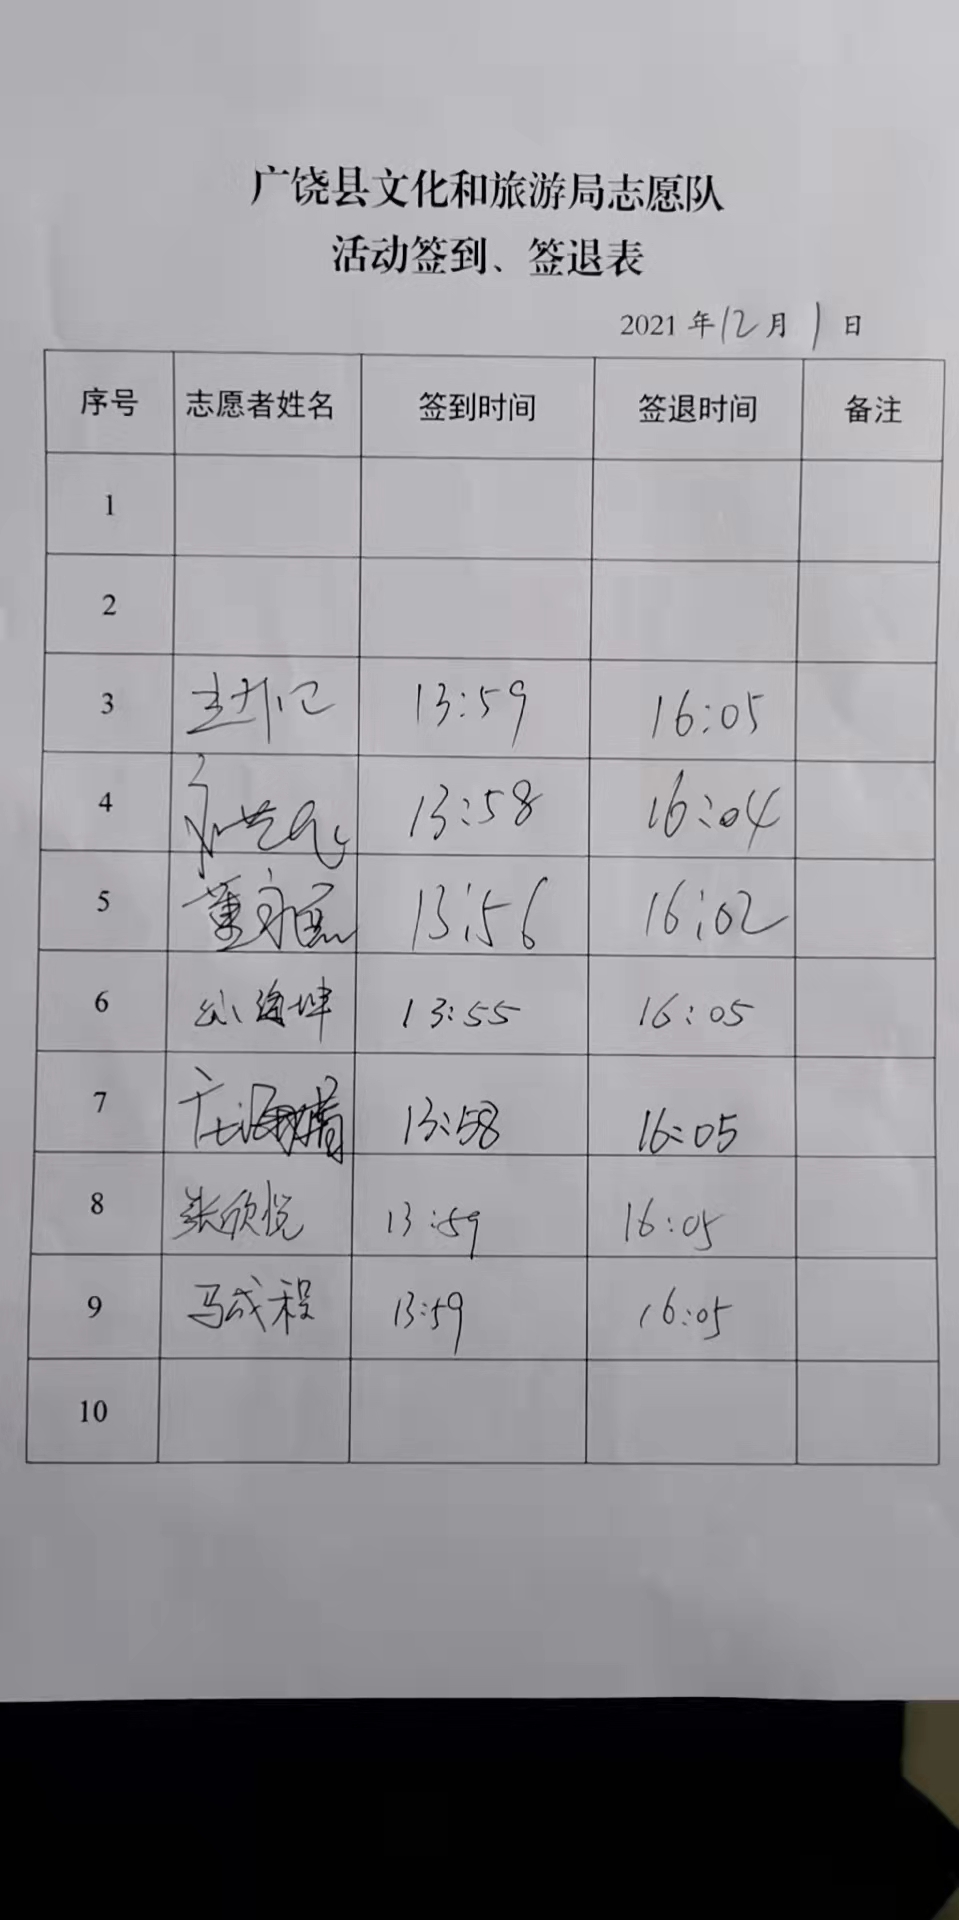 广饶县文化和旅游局志愿队
活动签到、签退表
2021 年 12 月 1 日
序号 志愿者姓名 签到时间 签退时间 备注
1
2
3 13:59 16:05
4 13:58 16:04
5 董永 13:56 16:02
6 孙海坤 13:55 16:05
7 13:58 16:05
8 张欣悦 13:59 16:05
9 马成程 13:59 16:05
10